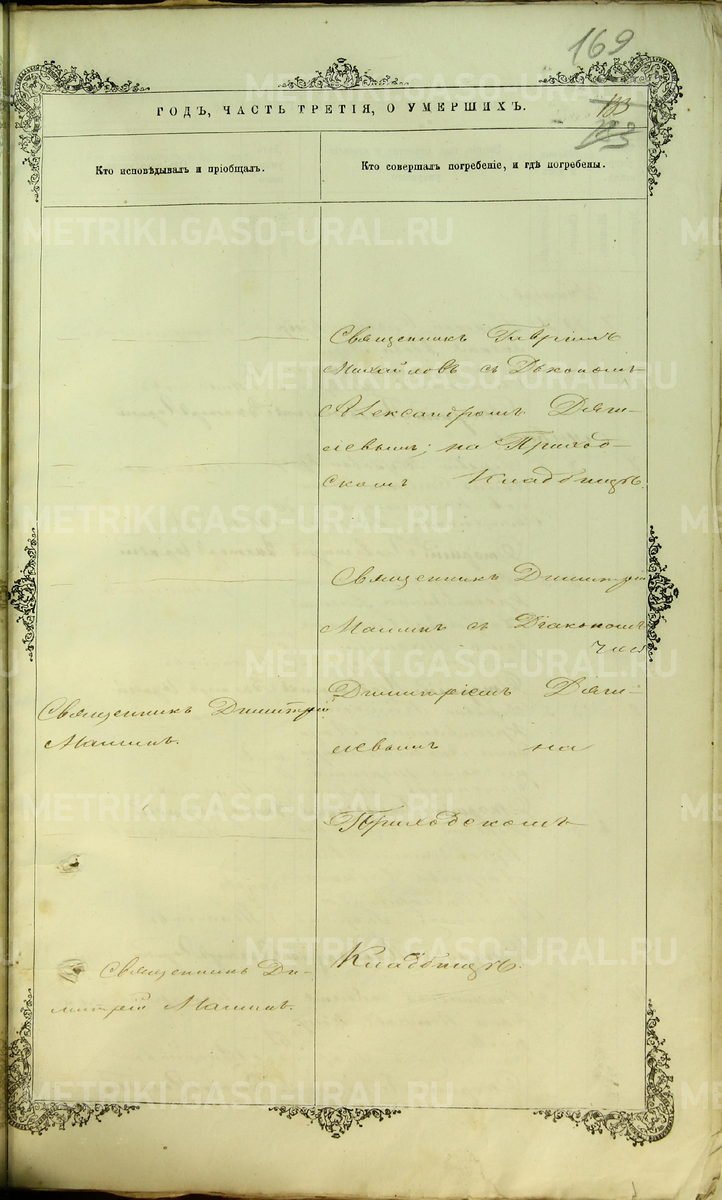 169
ГОДЪ, ЧАСТЬ ТРЕТІЯ, О УМЕРШИХЪ.
133
Кто исповѣдывалъ и пріобщалъ.
Кто совершалъ погребеніе, и гдѣ погребены.
Священникъ Гавріилъ
Михайловъ съ Дьякономъ
Александромъ Дяги-
левымъ; на Приход-
скомъ Кладбищѣ.
Священникъ Димитрій
съ Діакономъ
Димитріемъ Дяги-
левымъ на
Приходскомъ
Кладбищѣ.
Священникъ Димитрій
Священникъ Ди-
митрій
METRIKI.GASO-URAL.RU